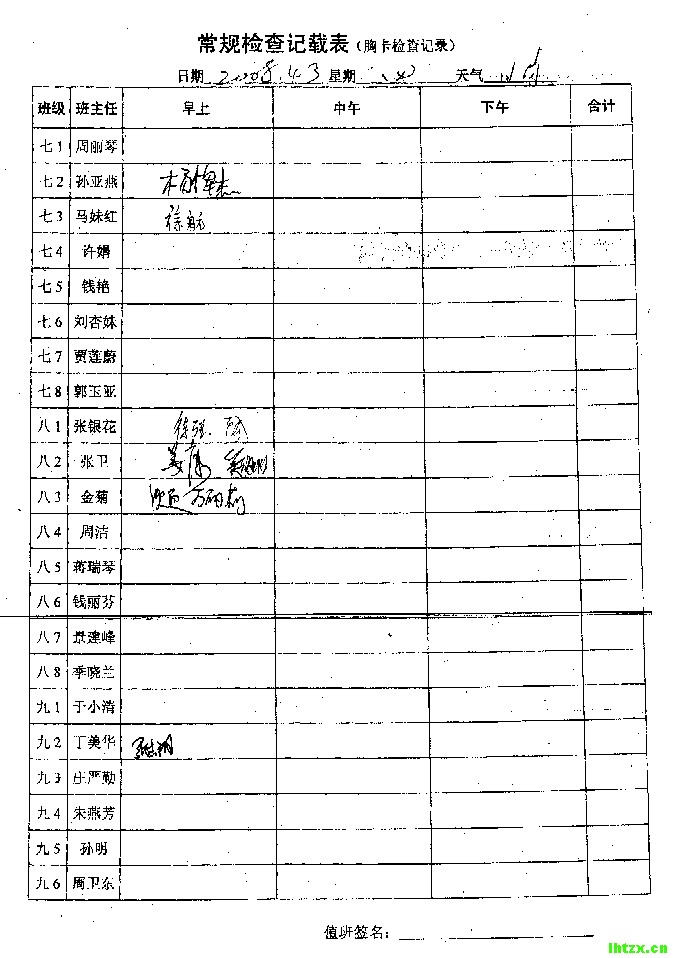 常规检查记载表（胸卡检查记录）
日期 2008.4.3 星期 天气
班级 班主任 早上 中午 下午 合计
七1 周丽琴
七2 孙亚燕
七3 马妹红 徐航
七4 许娟
七5 钱艳
七6 刘杏妹
七7 贾莲蔚
七8 郭玉亚
八1 张银花
八2 张卫
八3 金菊
八4 周洁
八5 蒋瑞琴
八6 钱丽芬
八7 景建峰
八8 季晓兰
九1 于小清
九2 丁美华
九3 庄严勤
九4 朱燕芳
九5 孙明
九6 周卫东
值班签名：
lhtzx.cn